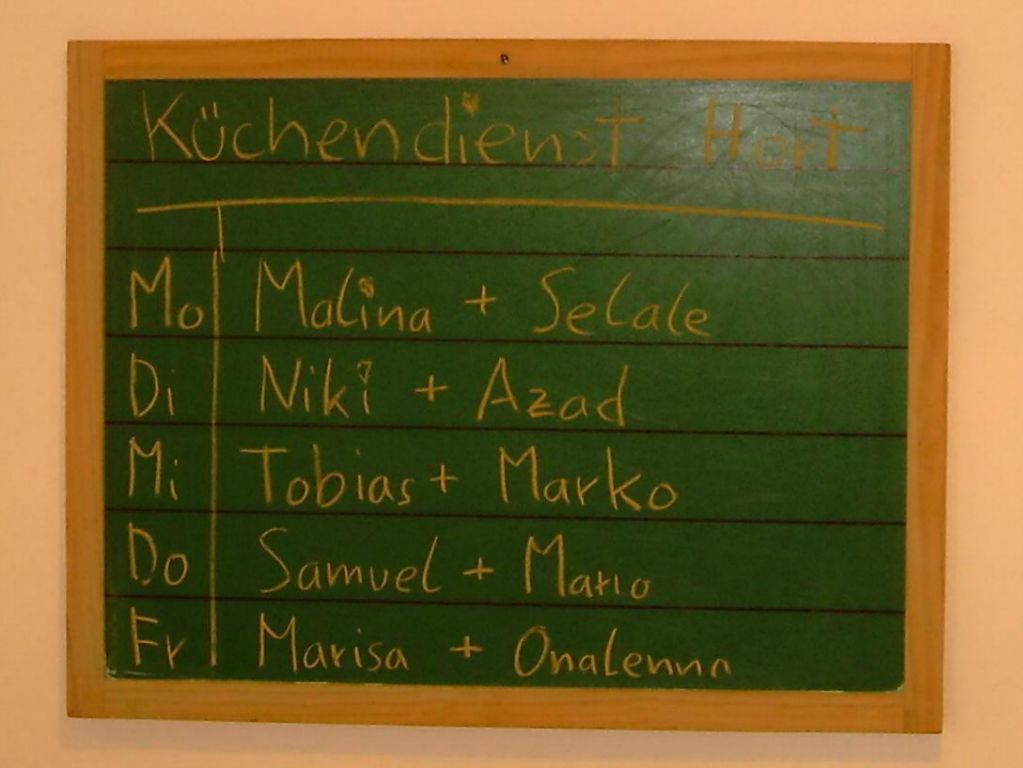 Küchendienst Hort
Mo Malina + Selale
Di Niki + Azad
Mi Tobias + Marko
Do Samuel + Mario
Fr Marisa + Onalenna